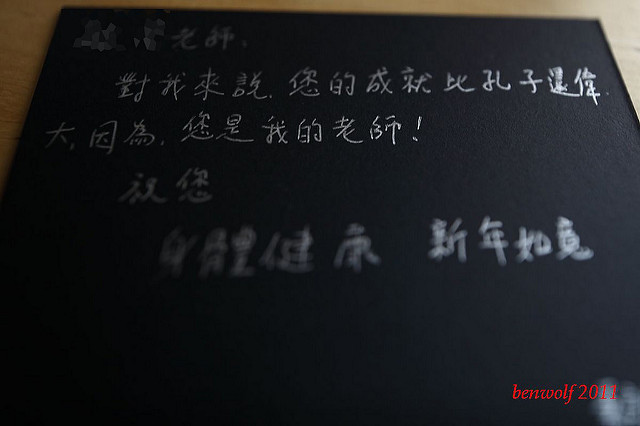 老師.
對我來說.您的成就比孔子還偉
大,因為.您是我的老師!
祝您
身體健康 新年如意
benwolf 2011